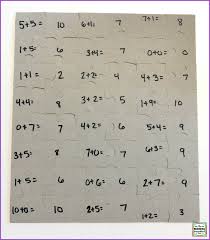 5+5= 10 6+1= 7 7+1= 8
1+5= 6 3+4= 7 0+0= 0
1+1= 2 2+2= 4 4+3= 7
4+4= 8 3+2= 5 1+9= 10
0+7= 7 4+2= 6 5+4= 9
3+5= 8 7+0= 7 6+3= 9
1+5= 6 0+6= 6 2+7= 9
10+0= 10 2+5= 7 1+2= 3